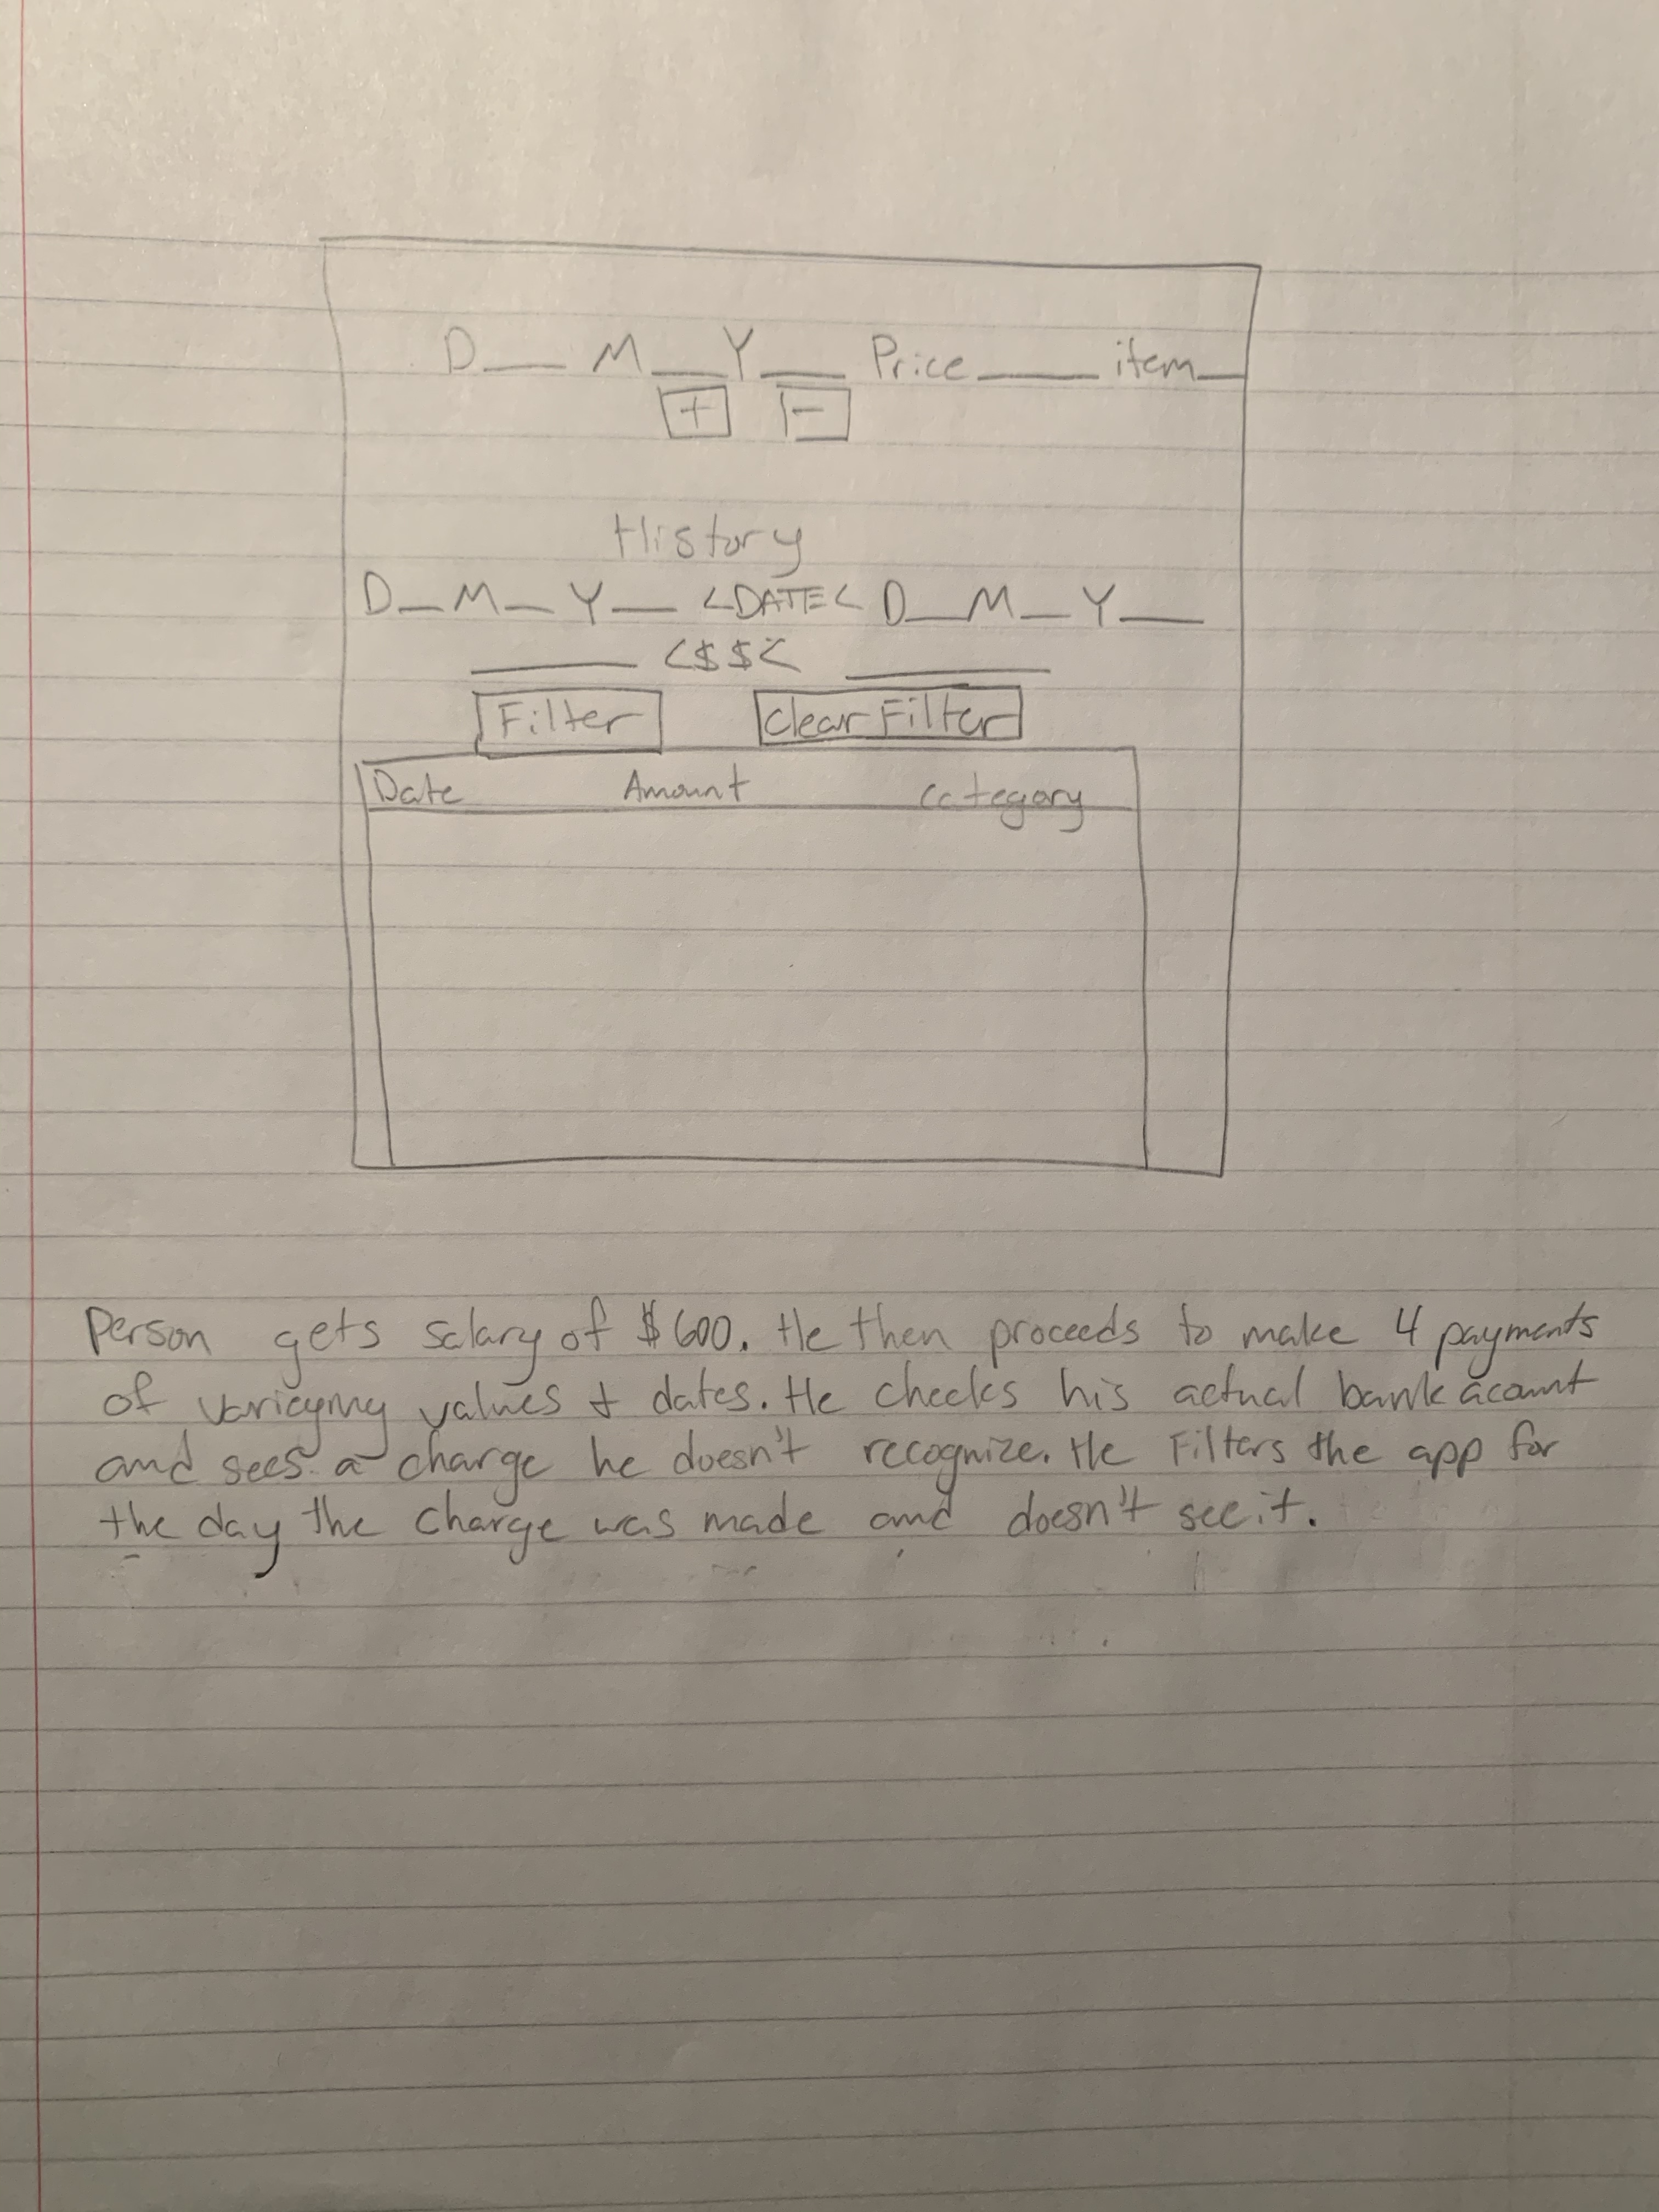 D__ M__ Y__ Price___ item_
+ -
History
D_ M_ Y__ <DATE< D__ M_ Y__
____ <$$< ____
Filter clear Filter
Date Amount Category
Person gets salary of $600. He then proceeds to make 4 payments
of varieying values + dates. He checks his actual bank acount
and sees a charge he doesn't recognize. He Filters the app for
the day the charge was made and doesn't see it.